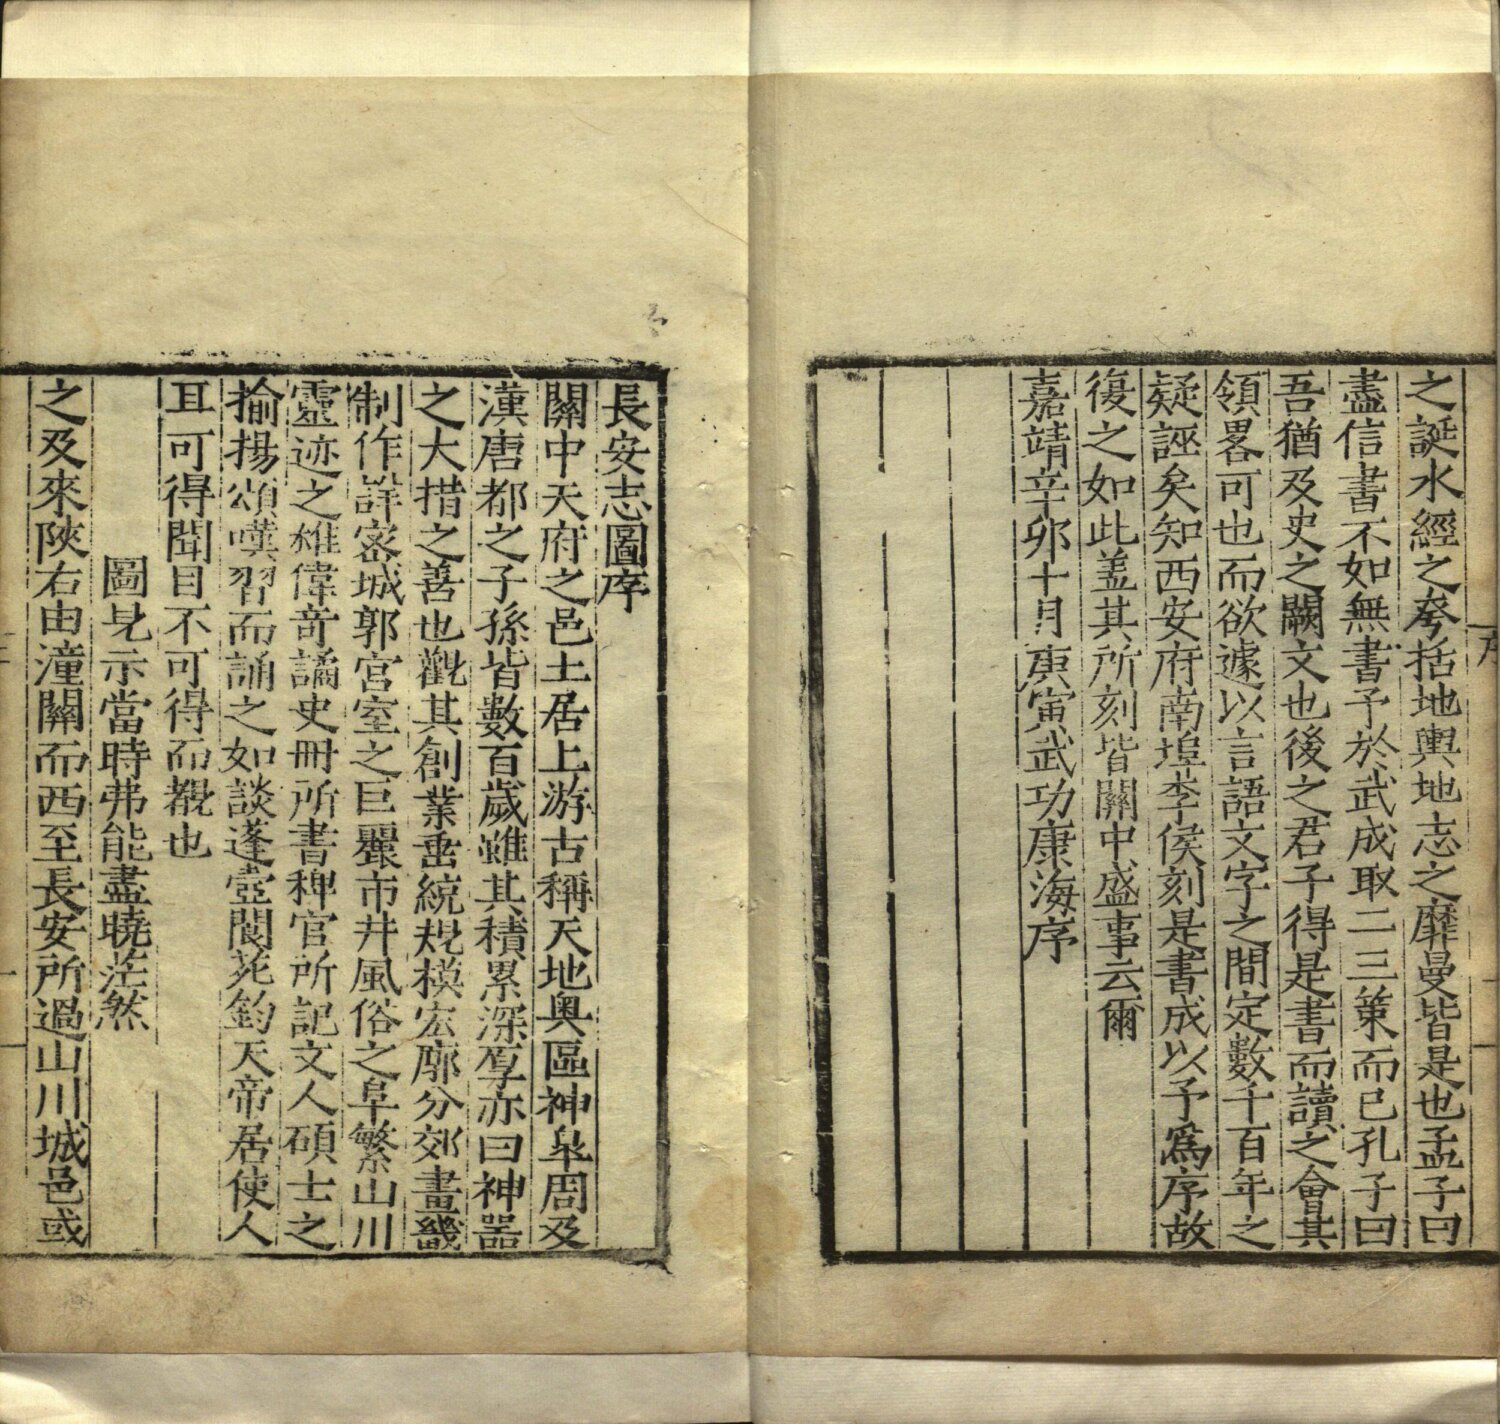 之誕水經之夸括地輿地志之靡曼皆是也孟子曰
盡信書不如無書予於武成取二三策而已孔子曰
吾猶及史之闕文也後之君子得是書而讀之會其
領畧可也而欲遽以言語文字之間定數千百年之
疑誣矣知西安府南埠李侯刻是書成以予爲序故
復之如此蓋其所刻皆關中盛事云爾
嘉靖辛卯十月庚寅武功康海序
長安志圖序
關中天府之邑土居上游古稱天地奧區神皐周及
漢唐都之子孫皆數百歲雖其積累深厚亦曰神器
之大措之善也觀其創業垂統規模宏廓分郊畫畿
制作詳密城郭宮室之巨麗市井風俗之阜繁山川
靈迹之雄偉竒譎史冊所書稗官所記文人碩士之
揄揚頌嘆習而誦之如談蓬壺閬苑鈞天帝居使人
耳可得聞目不可得而覩也
圖見示當時弗能盡曉茫然
之及來陜右由潼關而西至長安所過山川城邑或